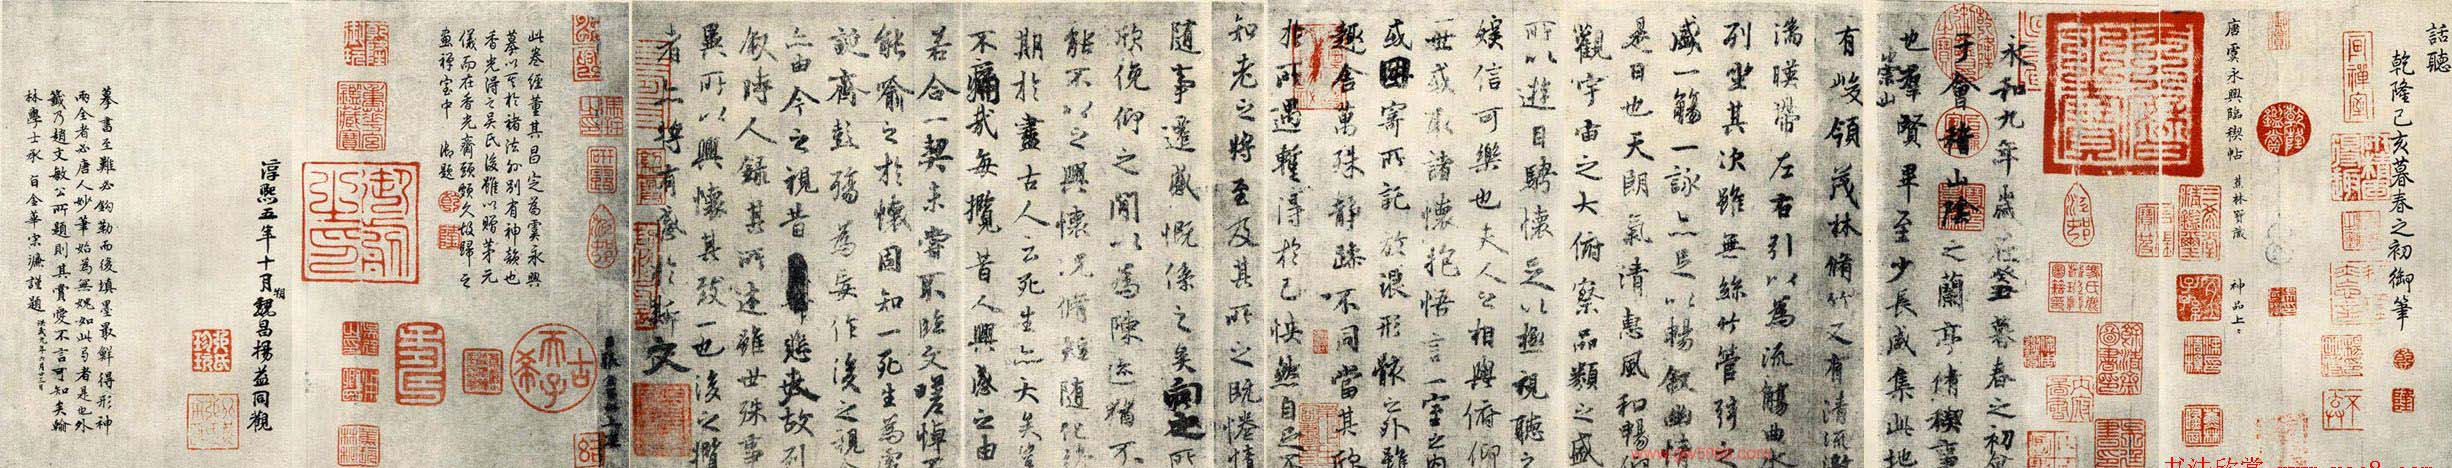 話聽
乾隆己亥暮春之初御筆
唐虞永興臨稧帖
神品上上
永和九年歲在癸丑暮春之初會
于會稽山陰之蘭亭脩稧事
也群賢畢至少長咸集此地
崇山
有峻領茂林脩竹又有清流激
湍暎帶左右引以為流觴曲水
列坐其次雖無絲竹管弦之
盛一觴一詠亦足以暢敘幽情
是日也天朗氣清惠風和暢仰
觀宇宙之大俯察品類之盛
所以遊目騁懷足以極視聽之
娛信可樂也夫人之相與俯仰
一世或取諸懷抱悟言一室之內
或因寄所託放浪形骸之外雖
趣舍萬殊靜躁不同當其欣
於所遇蹔得於己怏然自足不
知老之將至及其所之既惓情
隨事遷感慨係之矣向之所
欣俛仰之閒以為陳迹猶不
能不以之興懷況脩短隨化終
期於盡古人云死生亦大矣豈
不痛哉每攬昔人興感之由
若合一契未嘗不臨文嗟悼不
能喻之於懷固知一死生為虛
誕齊彭殤為妄作後之視今
亦由今之視昔悲夫故列
敘時人錄其所述雖世殊事
異所以興懷其致一也後之攬
者亦將有感於斯文
此卷經董其昌定為虞永興
摹以至於褚法外別有神韻也
香光得之吳氏後雖以贈茅元
儀而在香光齋頭頗久故歸之
畫禪室中 御題
古希天子
淳熙五年十月朔魏昌楊益同觀
摹書至難必鉤勒而後填墨最鮮得形神
兩全者必唐人妙筆始為無媿如此弓者是也外
籤乃趙文敏公所題則其賞愛不言可知矣翰
林學士承旨金華宋濂謹題
洪武九年六月十三日